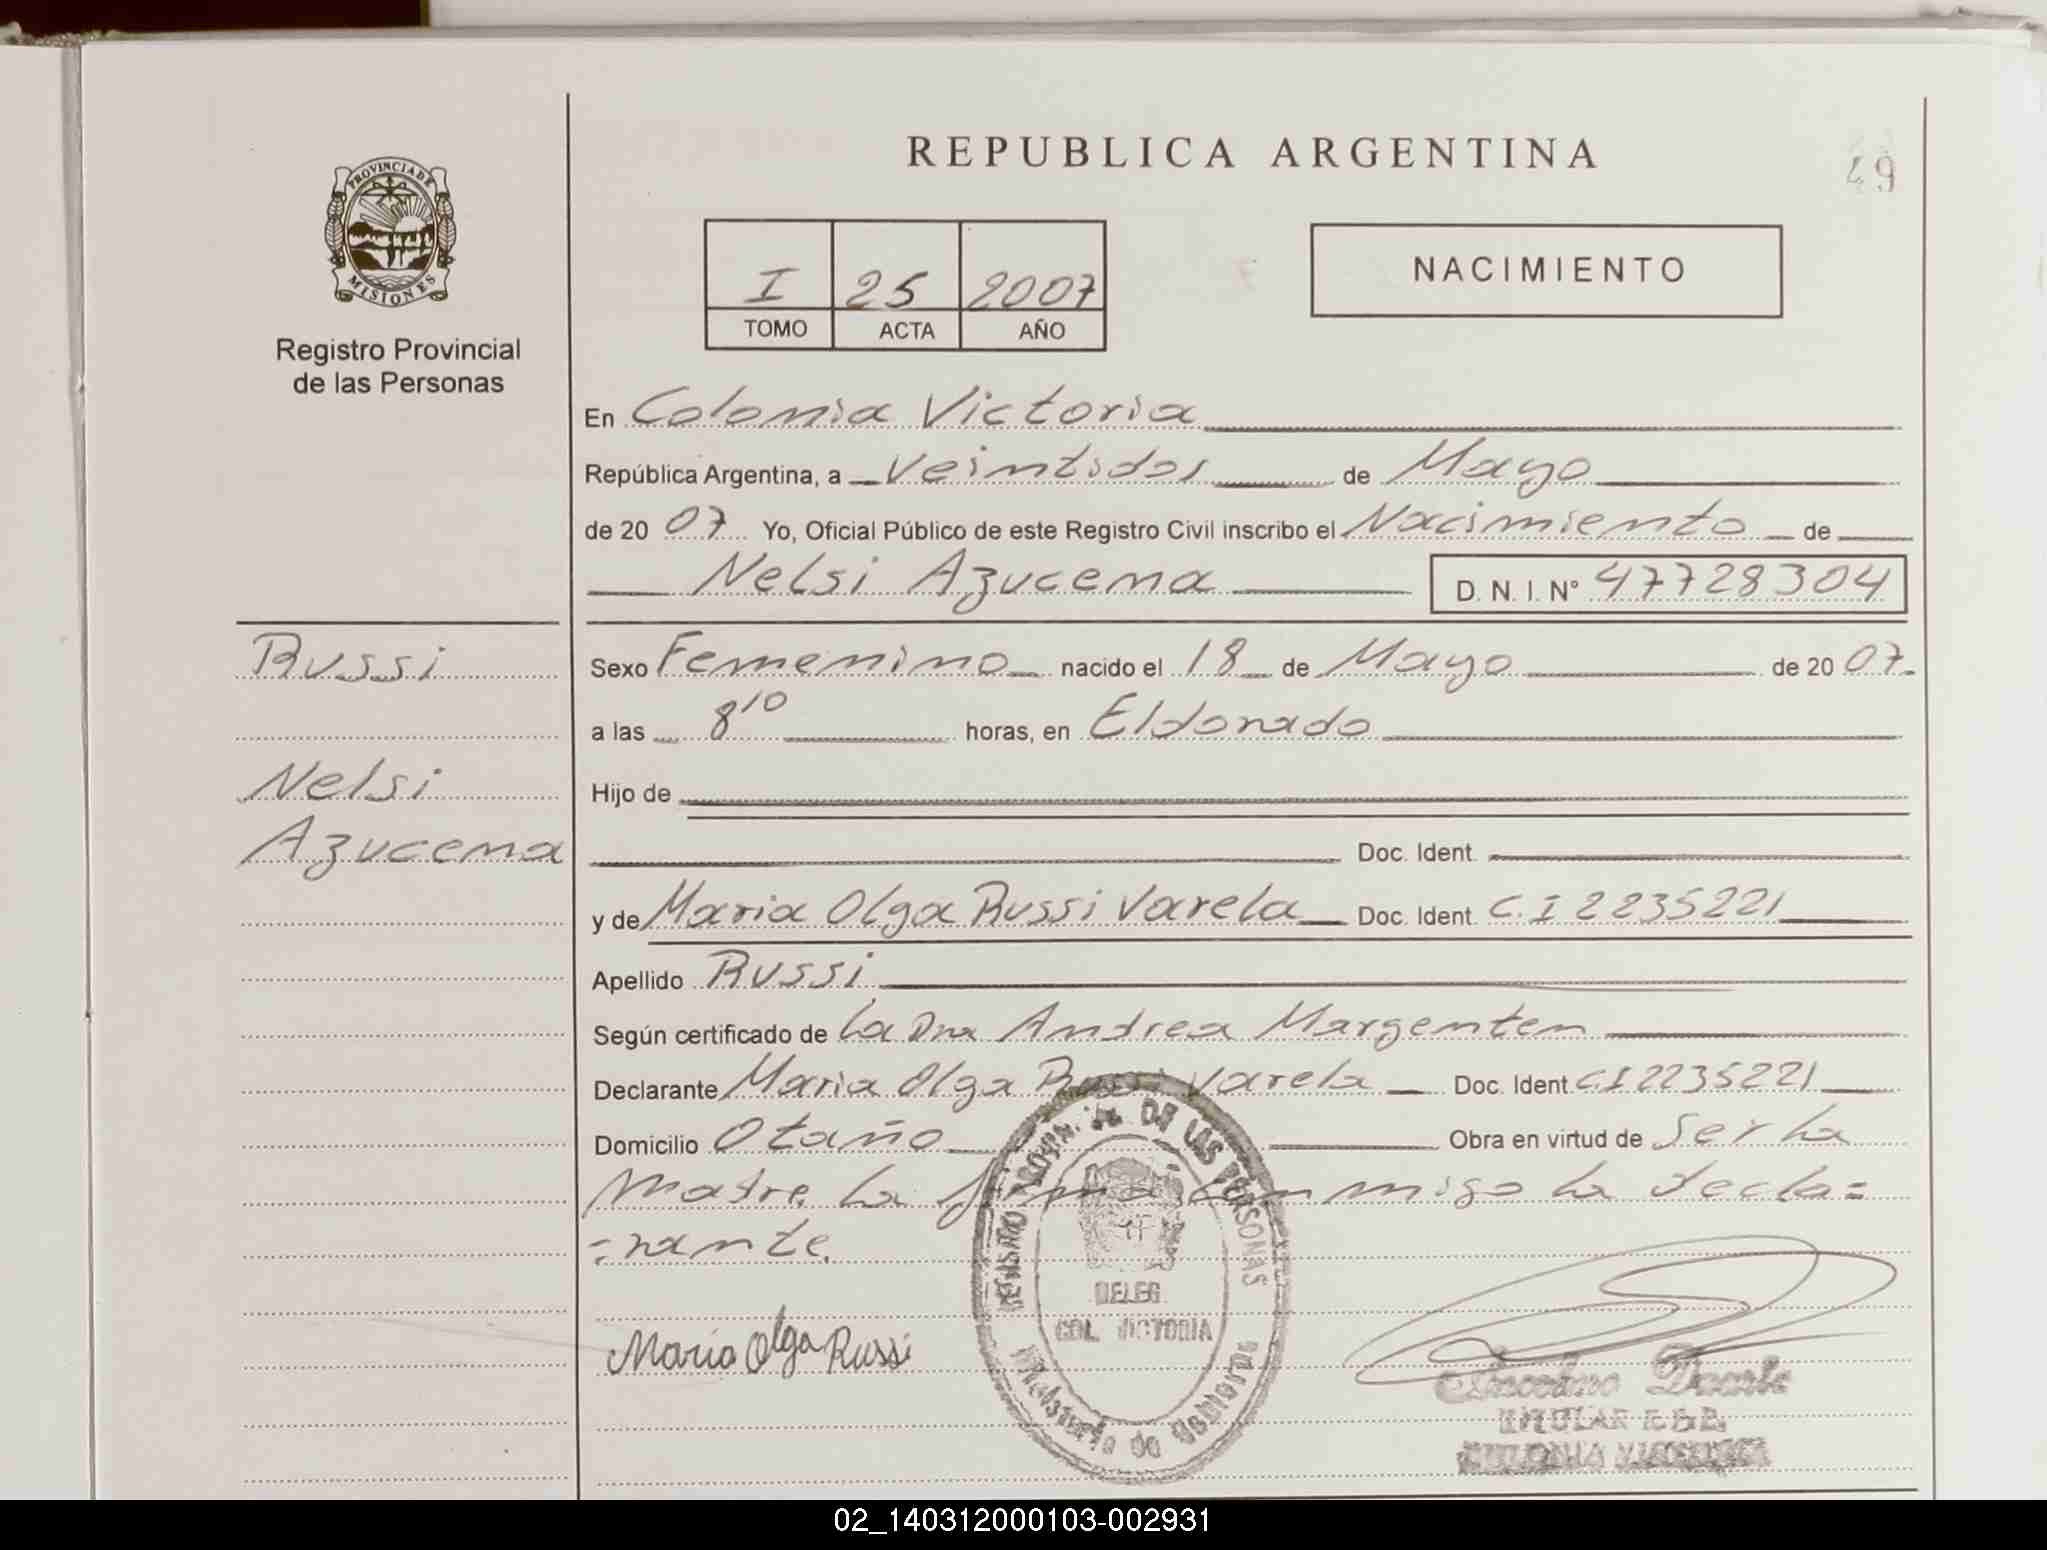 REPUBLICA ARGENTINA
49
PROVINCIA DE
MISIONES
Registro Provincial
de las Personas
I 25 2007
TOMO ACTA AÑO
NACIMIENTO
En Colonia Victoria
República Argentina, a Veintidos de Mayo
de 20 07 Yo, Oficial Público de este Registro Civil inscribo el Nacimiento de
Nelsi Azucena D. N. I. Nº 47728304
Russi
Nelsi
Azucena
Sexo Femenino nacido el 18 de Mayo de 20 07
a las 8¹⁰ horas, en Eldorado
Hijo de
Doc. Ident.
y de Maria Olga Russi Varela Doc. Ident. C.I 2235221
Apellido Russi
Según certificado de La Dra Andrea Margenten
Declarante Maria Olga Russi Varela Doc. Ident. C.I 2235221
Domicilio Otaño Obra en virtud de Ser La
Madre. La firma conmigo la decla=
=rante.
DE LAS PERSONAS
DELEG.
COL. VICTORIA
Ministerio de Gobierno
Maria Olga Russi
Duarte
TITULAR
COLONIA VICTORIA
02_140312000103-002931